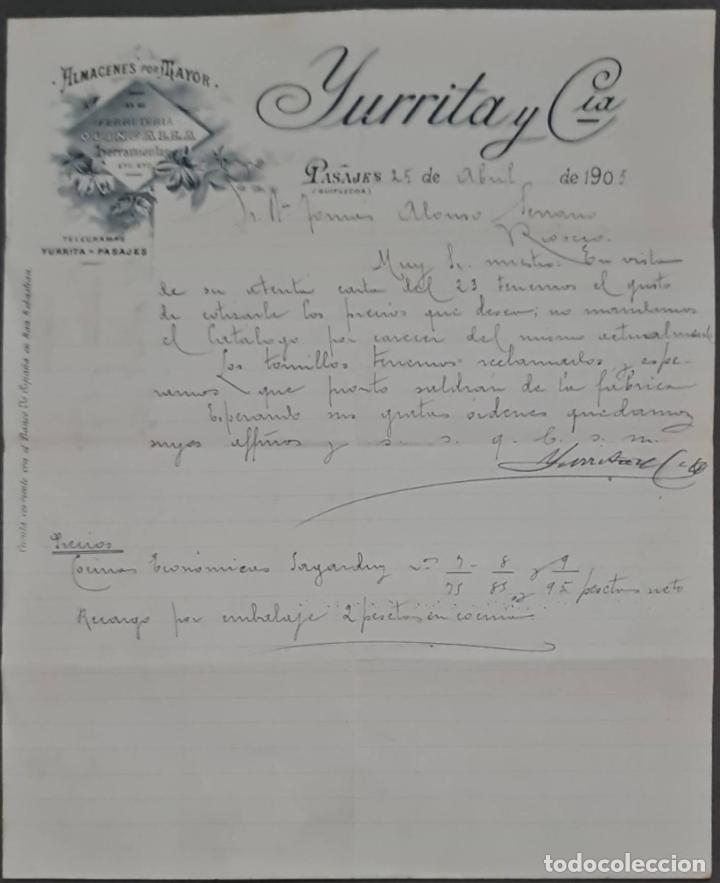 ALMACENES POR MAYOR.
DE
FERRETERIA
QUINCALLA
Herramientas
ETC. ETC.
TELEGRAMAS
YURRITA - PASAJES
Yurrita y Cia
PASAJES 25 de Abril de 1903
(GUIPUZCOA)
Sr. Dn Tomás Alonso Serrano
Rioseco.
Muy Sr. nuestro: En vista
de su atenta carta del 23 tenemos el gusto
de cotizarle los precios que desea; no mandamos
el Catálogo por carecer del mismo actualmente
Los tornillos tenemos reclamados y espe-
ramos que pronto saldran de la fábrica
Esperando sus gratas órdenes quedamos
suyos affmos y s. s. q. b. s. m.
Yurrita y Cia
Cuenta corriente con el Banco De España en San Sebastian.
Precios
Cocinas Económicas Sagarduy nos 7 - 8 y 9
75 85 y 95 pesetas neto
Recargo por embalaje 2 pesetas en cocina
todocoleccion